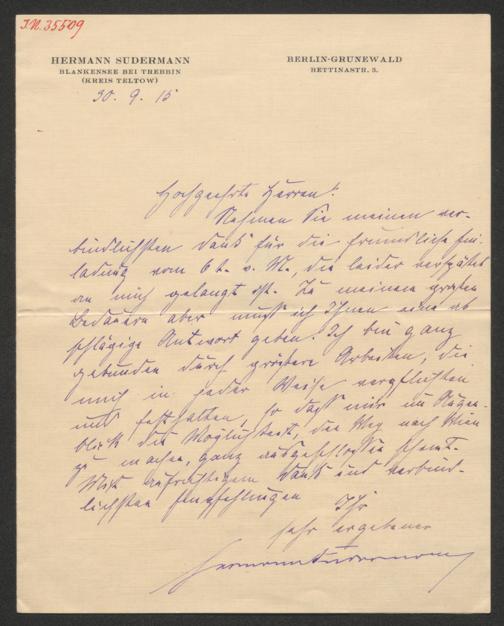 I.N. 35509
HERMANN SUDERMANN
BLANKENSEE BEI TREBBIN
(KREIS TELTOW)
BERLIN-GRUNEWALD
BETTINASTR. 3.
30. 9. 15
Hochgeehrte Herren!
Nehmen Sie meinen ver-
bindlichsten Dank für die freundliche Ein-
ladung vom 6t. v. M., die leider verspätet
an mich gelangt ist. Zu meinem großen
Bedauern aber muß ich Ihnen eine ab
schlägige Antwort geben. Ich bin ganz
gebunden durch größere Arbeiten, die
mich in jeder Weise verpflichten
und festhalten, so daß mir im Augen-
blick die Möglichkeit, den Weg nach Wien
zu machen, ganz ausgeschlossen scheint.
Mit aufrichtigem Dank und verbind-
lichsten Empfehlungen
Ihr
sehr ergebener
Hermann Sudermann